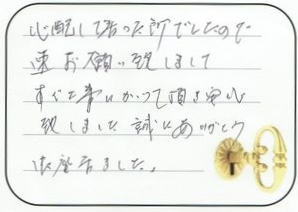 心配して居った所でしたので
速お願い致しまして
すぐに来ていただいて頂き安心
致しました 誠にありがとう
御座居ました。